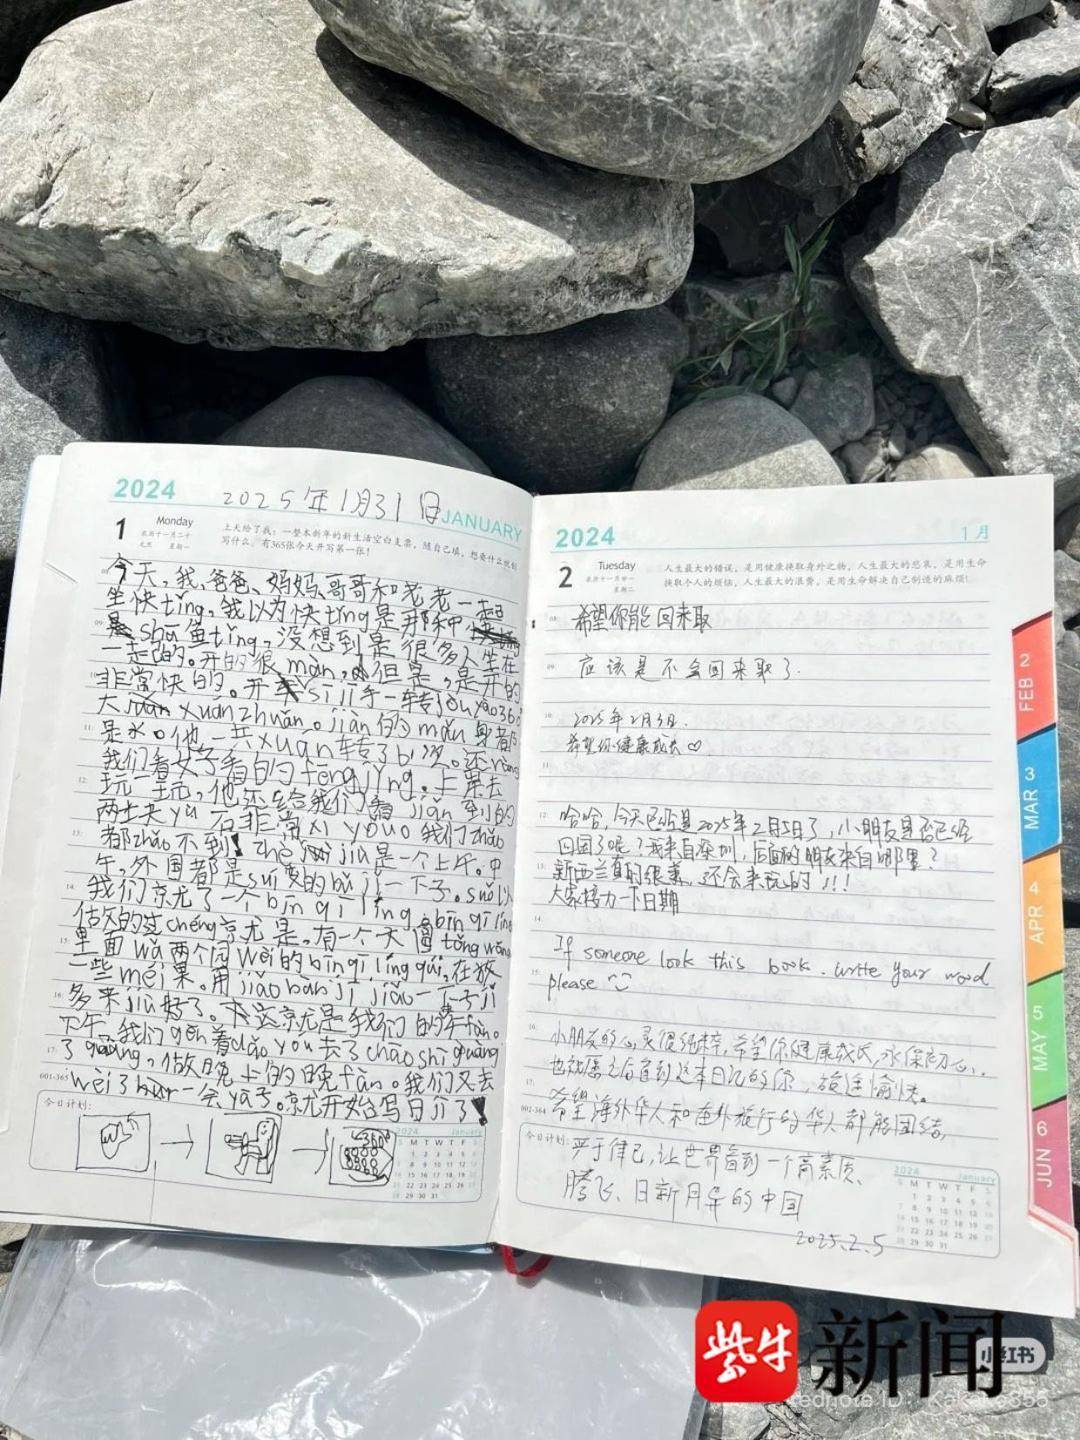 2024
2025年1月31日
JANUARY
1
Monday
农历十一月二十
元旦 星期一
上天给了我:一整本新年的新生活空白支票,随自己填,想要什么就
写什么,有365张今天开写第一张!
今天,我、爸爸、妈妈、哥哥和老老一起
坐快tǐng,我以为快tǐng是那种
是shā鱼tǐng,没想到是很多人坐在
一起的。开的很màn,但是,是开的
非常快的。开sī jī手一转jòu yào360
大xuán zhuǎn。jiān的mǎn身都
是水。他一共xuán转了6次。还
我们看
玩一玩,他还给我们 jiǎn到的
两土夬yù石非常xī yǒu我们zhǎo
都zhǎo不到! zhè jiù是一个上午。中
午,外国都是suí更的bǔ jí一下子。suǒ以
我们京尤了一个bīn qī líng,bīn qī líng
估攵的过chéng京尤是,有一个大圆tǒng
里面wā两个园wěi的bīn qī líng qiú,在放
一些méi果。用jiǎo bàn jī jiǎo一下子jī
多来jiù好了。这京尤是我们的午fàn。
下午,我们gēn着dǎo yóu去了chāo shì guàng
了guàng,做晚上的晚fàn。我们又去
wèi了 一会yā子。京尤开始写日介了
001-365
今日计划:
2024 January
S M T W T F S
1 2 3 4 5 6
7 8 9 10 11 12 13
14 15 16 17 18 19 20
21 22 23 24 25 26 27
28 29 30 31
2024
1月
2
Tuesday
农历十一月廿一
星期二
人生最大的错误,是用健康换取身外之物,人生最大的悲哀,是用生命
换取个人的烦恼,人生最大的浪费,是用生命解决自己制造的麻烦!
希望你能回来取
应该是不会回来取了.
2025年2月3日.
希望你健康成长♡
哈哈,今天已经是2025年2月5日了,小朋友是否已经
回国了呢?我来自深圳,后面的朋友来自哪里?
新西兰真的很美,还会来玩的!!!
大家接力一下日期
If someone look this book. write your word
please
小朋友的心灵很纯粹,希望你健康成长,永保初心。
也祝愿之后看到这本日记的你,旅途愉快。
希望海外华人和在外旅行的华人都能团结,
002-364
今日计划:
严于律己,让世界看到一个高素质、
腾飞、日新月异的中国
2025.2.5
2024 January
S M T W T F S
1 2 3 4 5 6
7 8 9 10 11 12 13
14 15 16 17 18 19 20
21 22 23 24 25 26 27
28 29 30 31
2 FEB
3 MAR
4 APR
5 MAY
6 JUN
紫牛
新闻
小红书